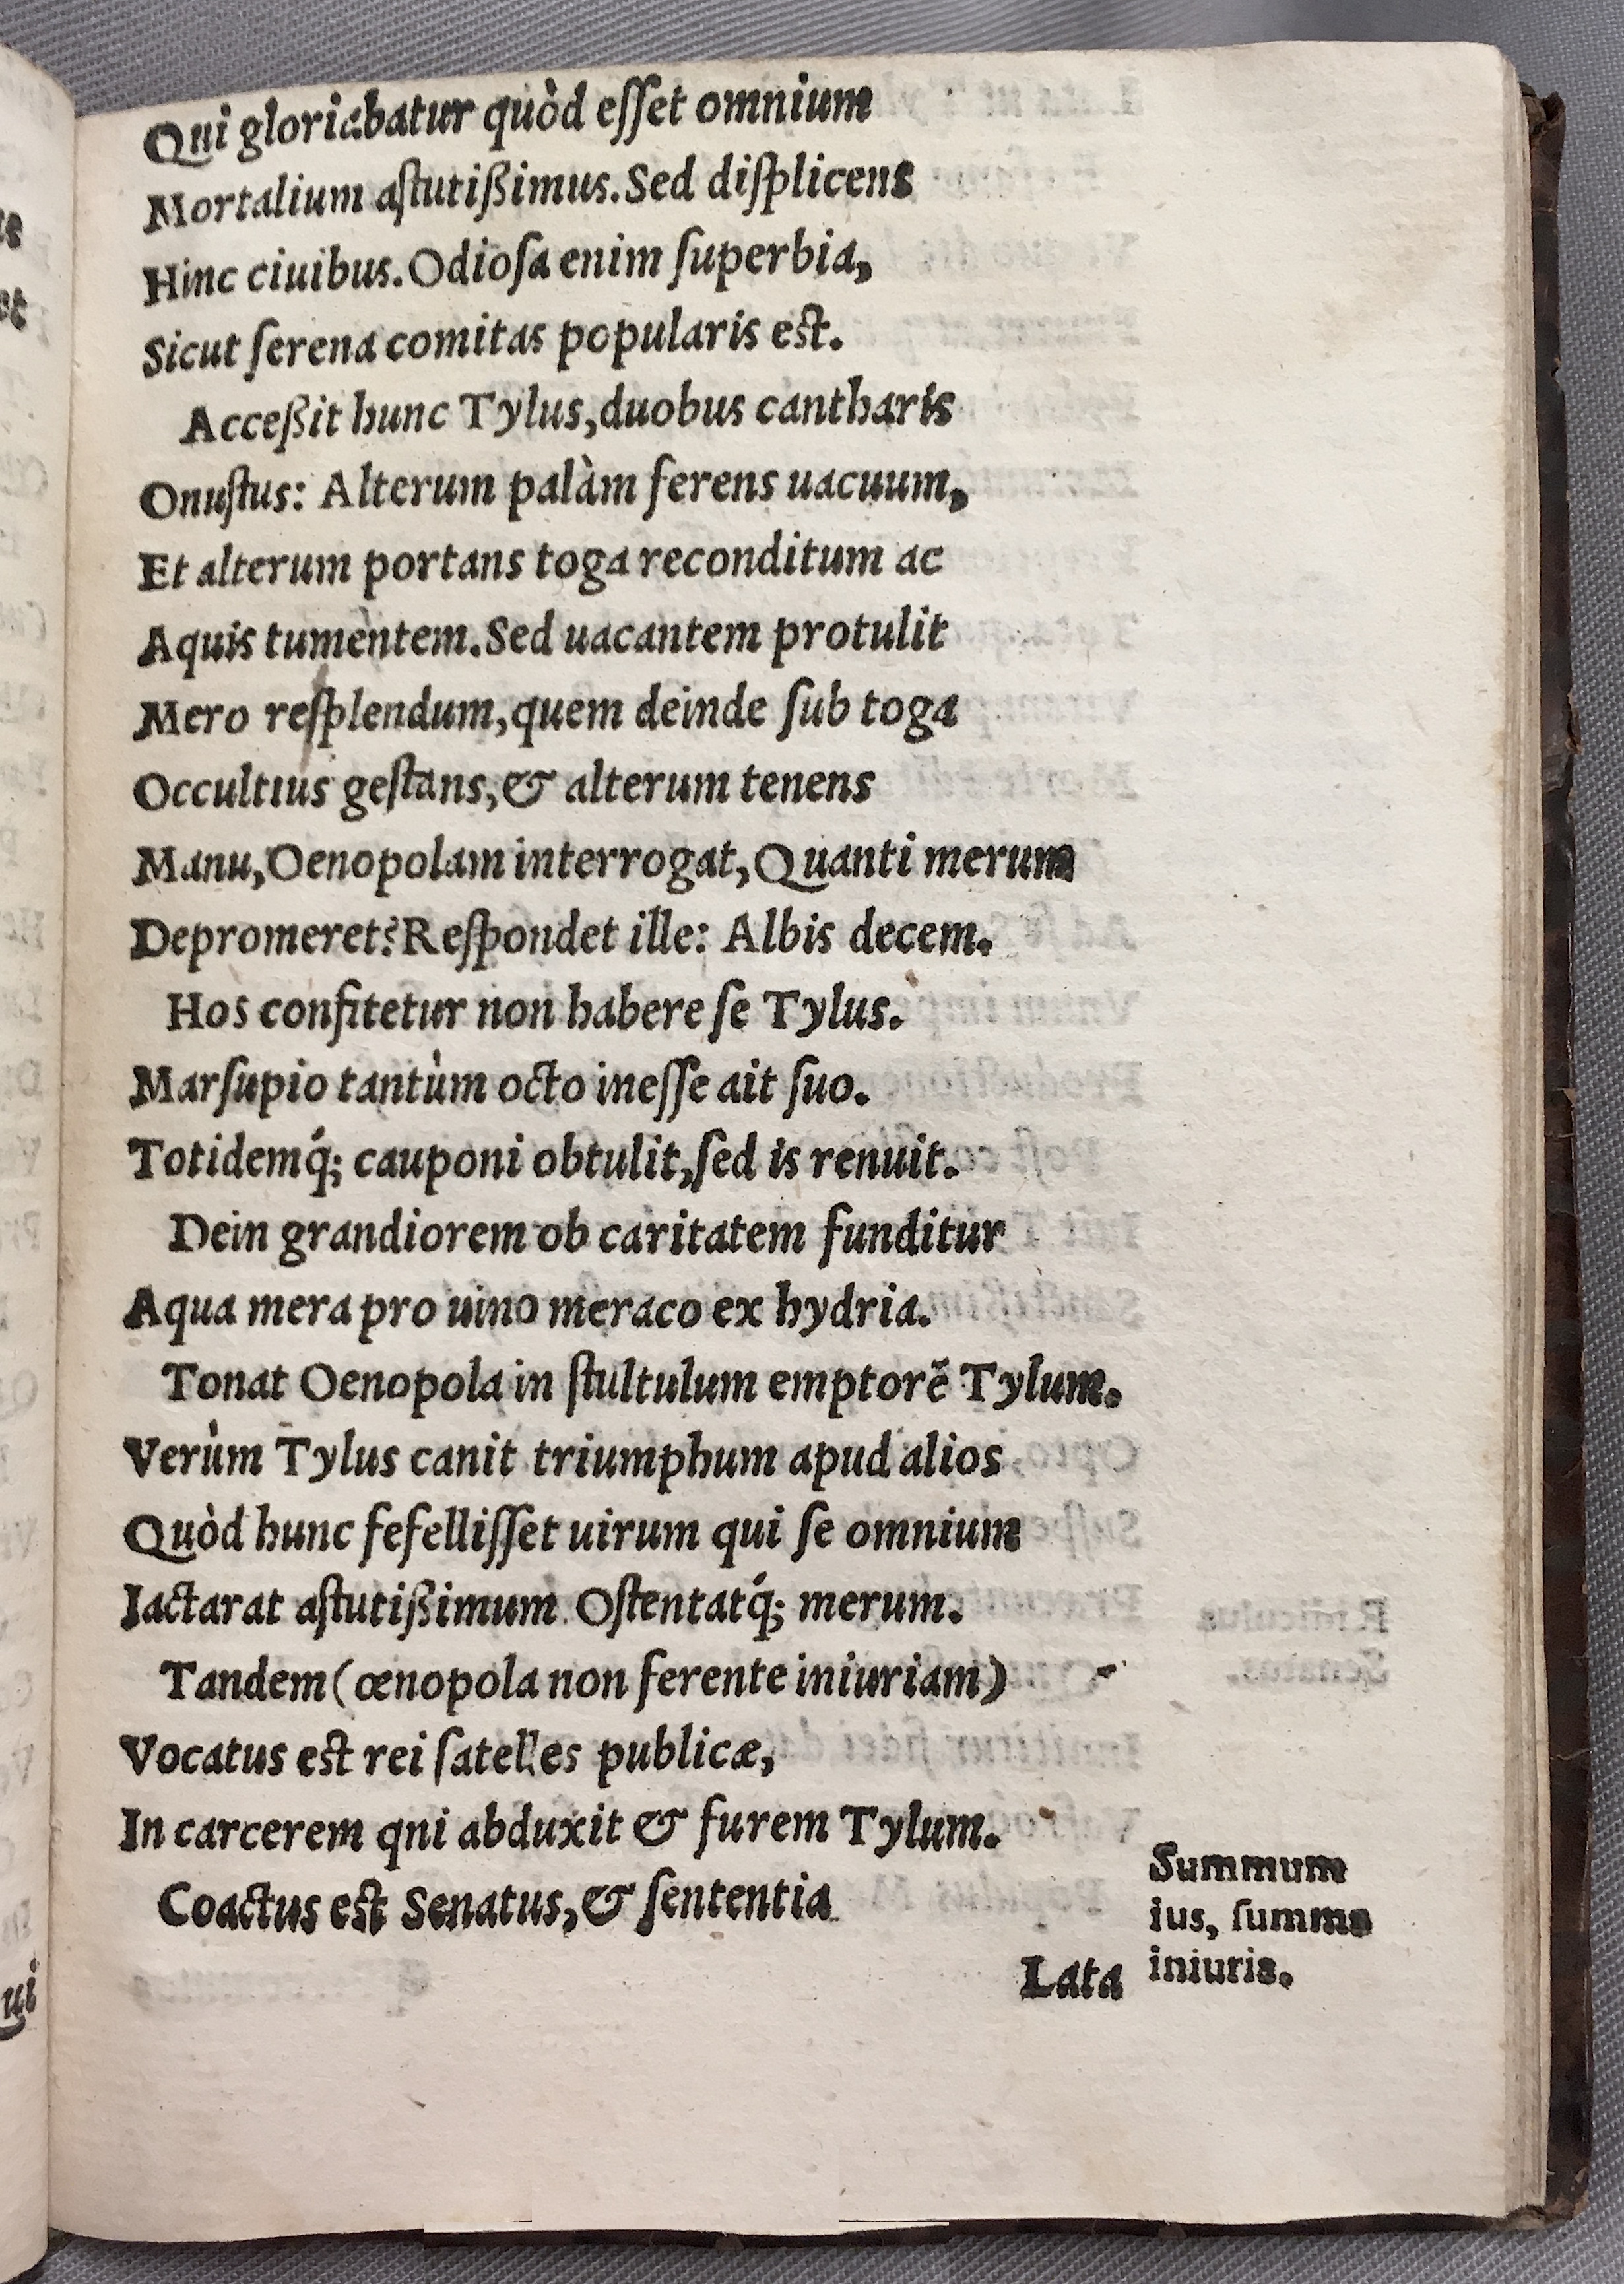 Qui gloriabatur quòd eſſet omnium
Mortalium aſtutißimus. Sed diſplicens
Hinc ciuibus. Odioſa enim ſuperbia,
Sicut ſerena comitas popularis est.
Acceßit hunc Tylus, duobus cantharis
Onuſtus: Alterum palàm ferens uacuum,
Et alterum portans toga reconditum ac
Aquis tumentem. Sed uacantem protulit
Mero reſplendum, quem deinde ſub toga
Occultius geſtans, & alterum tenens
Manu, Oenopolam interrogat, Quanti merum
Depromeret? Reſpondet ille: Albis decem.
Hos confitetur non habere ſe Tylus.
Marſupio tantùm octo ineſſe ait ſuo.
Totidemq́; cauponi obtulit, ſed is renuit.
Dein grandiorem ob caritatem funditur
Aqua mera pro uino meraco ex hydria.
Tonat Oenopola in ſtultulum emptorē Tylum.
Verùm Tylus canit triumphum apud alios
Quòd hunc fefelliſſet uirum qui ſe omnium
Iactarat aſtutißimum. Oſtentatq́; merum.
Tandem (œnopola non ferente iniuriam)
Vocatus est rei ſatelles publicæ,
In carcerem qni abduxit & furem Tylum.
Coactus est Senatus, & ſententia
Summum
ius, ſumma
iniuria.
Lata
ui